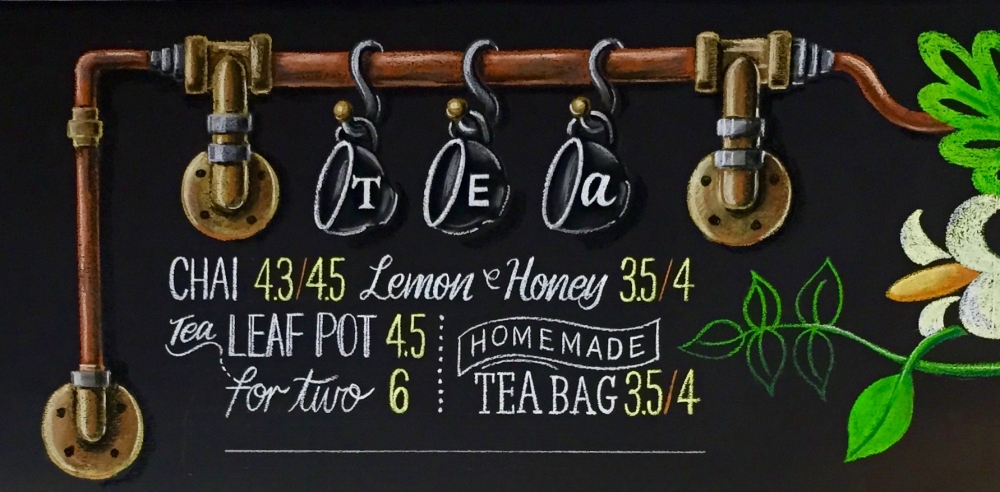 TEa
CHAI 4.3/4.5 Lemon e Honey 3.5/4
Tea LEAF POT 4.5
for two 6
HOMEMADE
TEA BAG 3.5/4